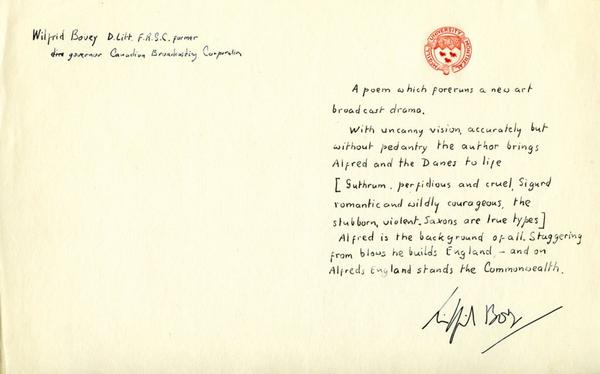 Wilfrid Bovey D. Litt. F.R.S.C. former
governor Canadian Broadcasting Corporation
McGILL UNIVERSITY MONTREAL
A poem which foreruns a new art
broadcast drama.
With uncanny vision, accurately but
without pedantry the author brings
Alfred and the Danes to life
[ Guthrum, perfidious and cruel, Sigurd
romantic and wildly courageous, the
stubborn, violent Saxons are true types ]
Alfred is the background of all. Staggering
from blows he builds England, – and on
Alfreds England stands the Commonwealth.